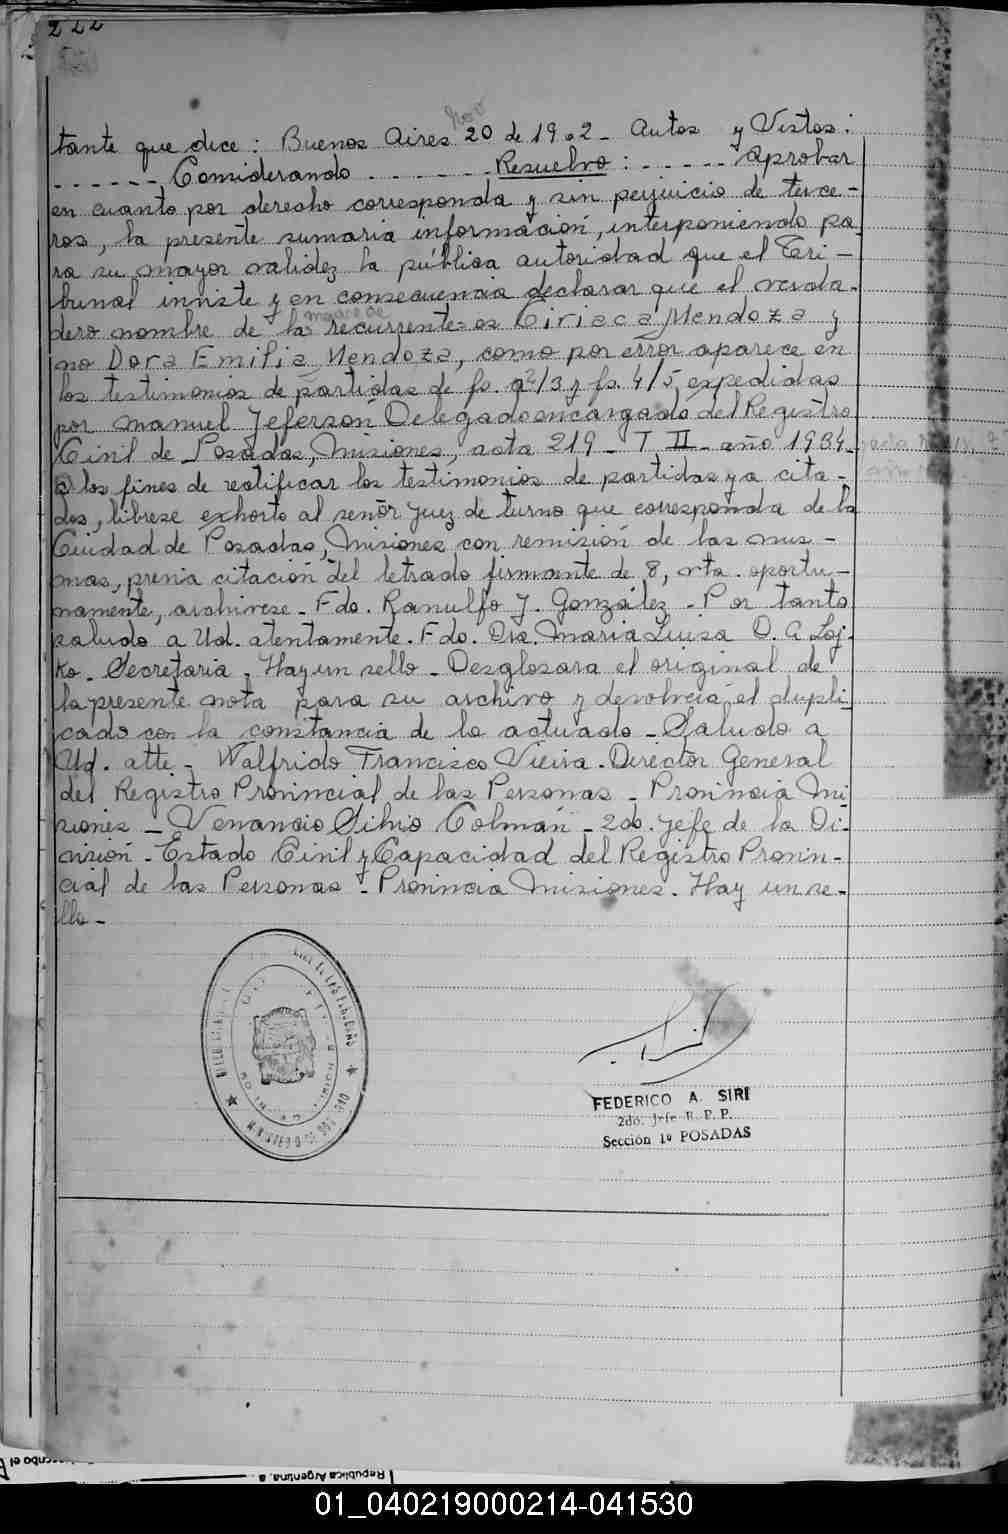 222
tante que dice: Buenos Aires 20 de 19 2 - Autos y Vistos:
...... Considerando ....... Resuelvo: ...... Aprobar
en cuanto por derecho corresponda y sin perjuicio de terce-
ros, la presente sumaria información, interponiendo pa-
ra su mayor validez la pública autoridad que el Tri-
bunal inviste y en consecuencia declarar que el verda-
madre de
dero nombre de la recurrente es Ciriaca Mendoza y
no Dora Emilia Mendoza, como por error aparece en
los testimonios de partidas de fs. 2/3 y fs. 4/5, expedidas
por Manuel Jeferson Delegado encargado del Registro
Civil de Posadas, Misiones, acta 219 - T II - año 1934
A los fines de rectificar los testimonios de partidas ya cita-
dos, líbrese exhorto al señor Juez de turno que corresponda de la
Ciudad de Posadas, Misiones con remisión de las mis-
mas, previa citación del letrado firmante de 8, vta. oportu-
namente, archívese - Fdo. Ranulfo J. González - Por tanto
saludo a Ud. atentamente. Fdo. Dra. María Luisa O. A Loj-
ko - Secretaria - Hay un sello - Desglosara el original de
la presente nota para su archivo y devolverá el dupli-
cado con la constancia de lo actuado - Saludo a
Ud. atte - Walfrido Francisco Vieira - Director General
del Registro Provincial de las Personas - Provincia Mi
siones - Venancio Silvio Colmán - 2do. Jefe de la Di-
visión - Estado Civil y Capacidad del Registro Provin-
cial de las Personas - Provincia Misiones. Hay un se-
llo -
FEDERICO A. SIRI
2do. Jefe R. P. P.
Sección 1ª POSADAS
República Argentina, a
01_040219000214-041530